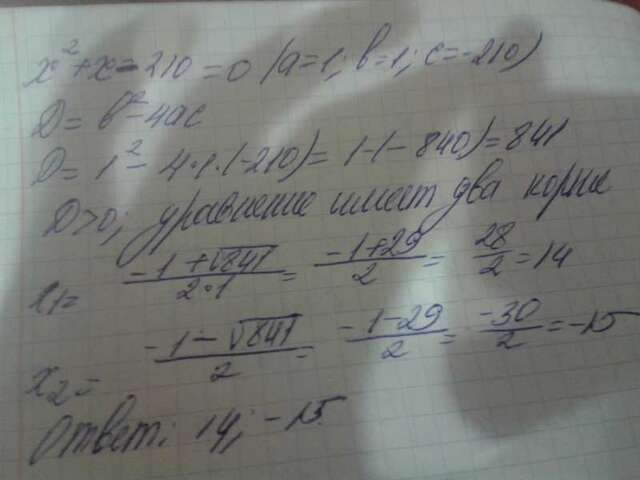 x²+x-210=0 (a=1; b=1; c=-210)
D= b²-4ac
D= 1²-4·1·(-210)= 1-(-840)=841
D>0; уравнение имеет два корня
x₁= (-1+√841)/(2·1) = (-1+29)/2 = 28/2 =14
x₂= (-1-√841)/2 = (-1-29)/2 = -30/2 =-15
Ответ: 14; -15.